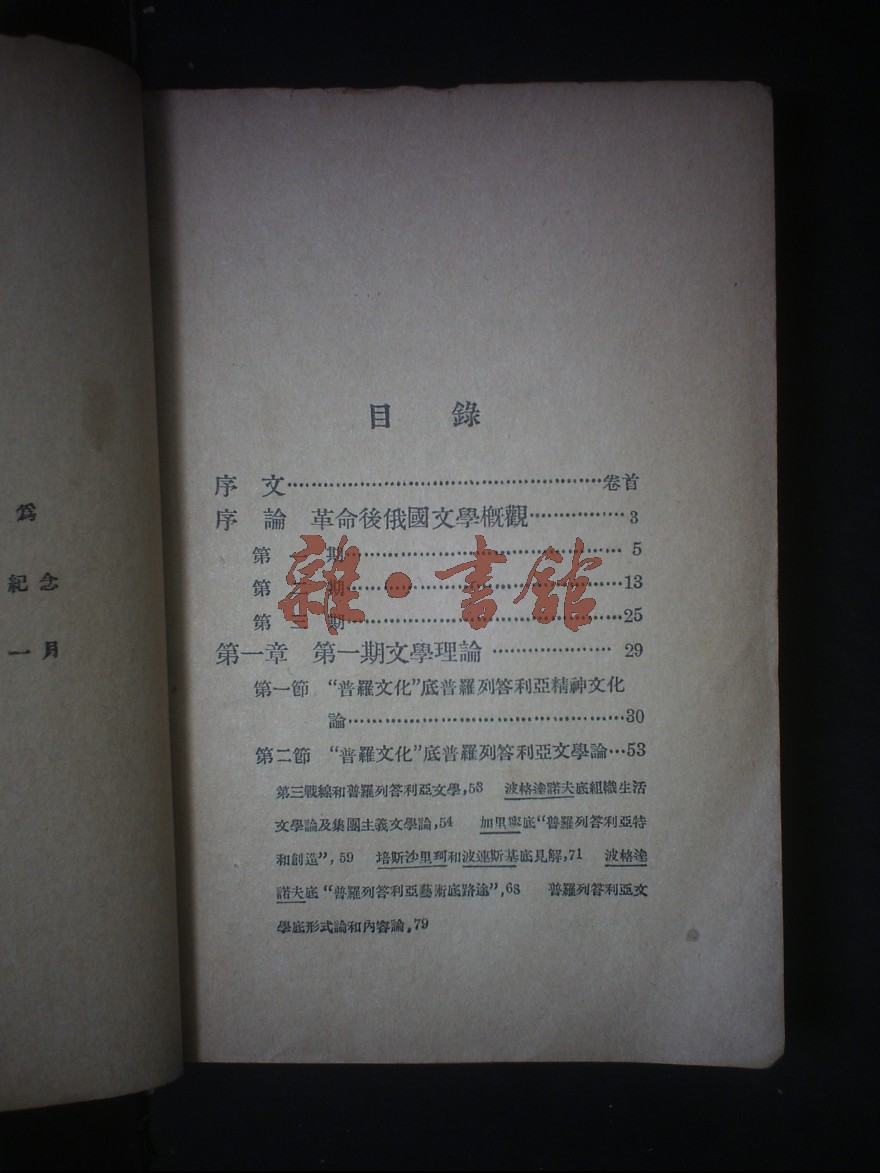 爲
紀念
一月
目錄
序文……………………………………卷首
序論 革命後俄國文學概觀…………… 3
第一期…………………………………… 5
第二期……………………………………13
第三期……………………………………25
第一章 第一期文學理論 ……………… 29
第一節 “普羅文化”底普羅列答利亞精神文化
論……………………………………30
第二節 “普羅文化”底普羅列答利亞文學論…53
第三戰線和普羅列答利亞文學,53 波格達諾夫底組織生活
文學論及集團主義文學論,54 加里寧底“普羅列答利亞特
和創造”, 59 培斯沙里珂和波連斯基底見解,71 波格達
諾夫底“普羅列答利亞藝術底路途”,68 普羅列答利亞文
學底形式論和內容論,79
雜·書館